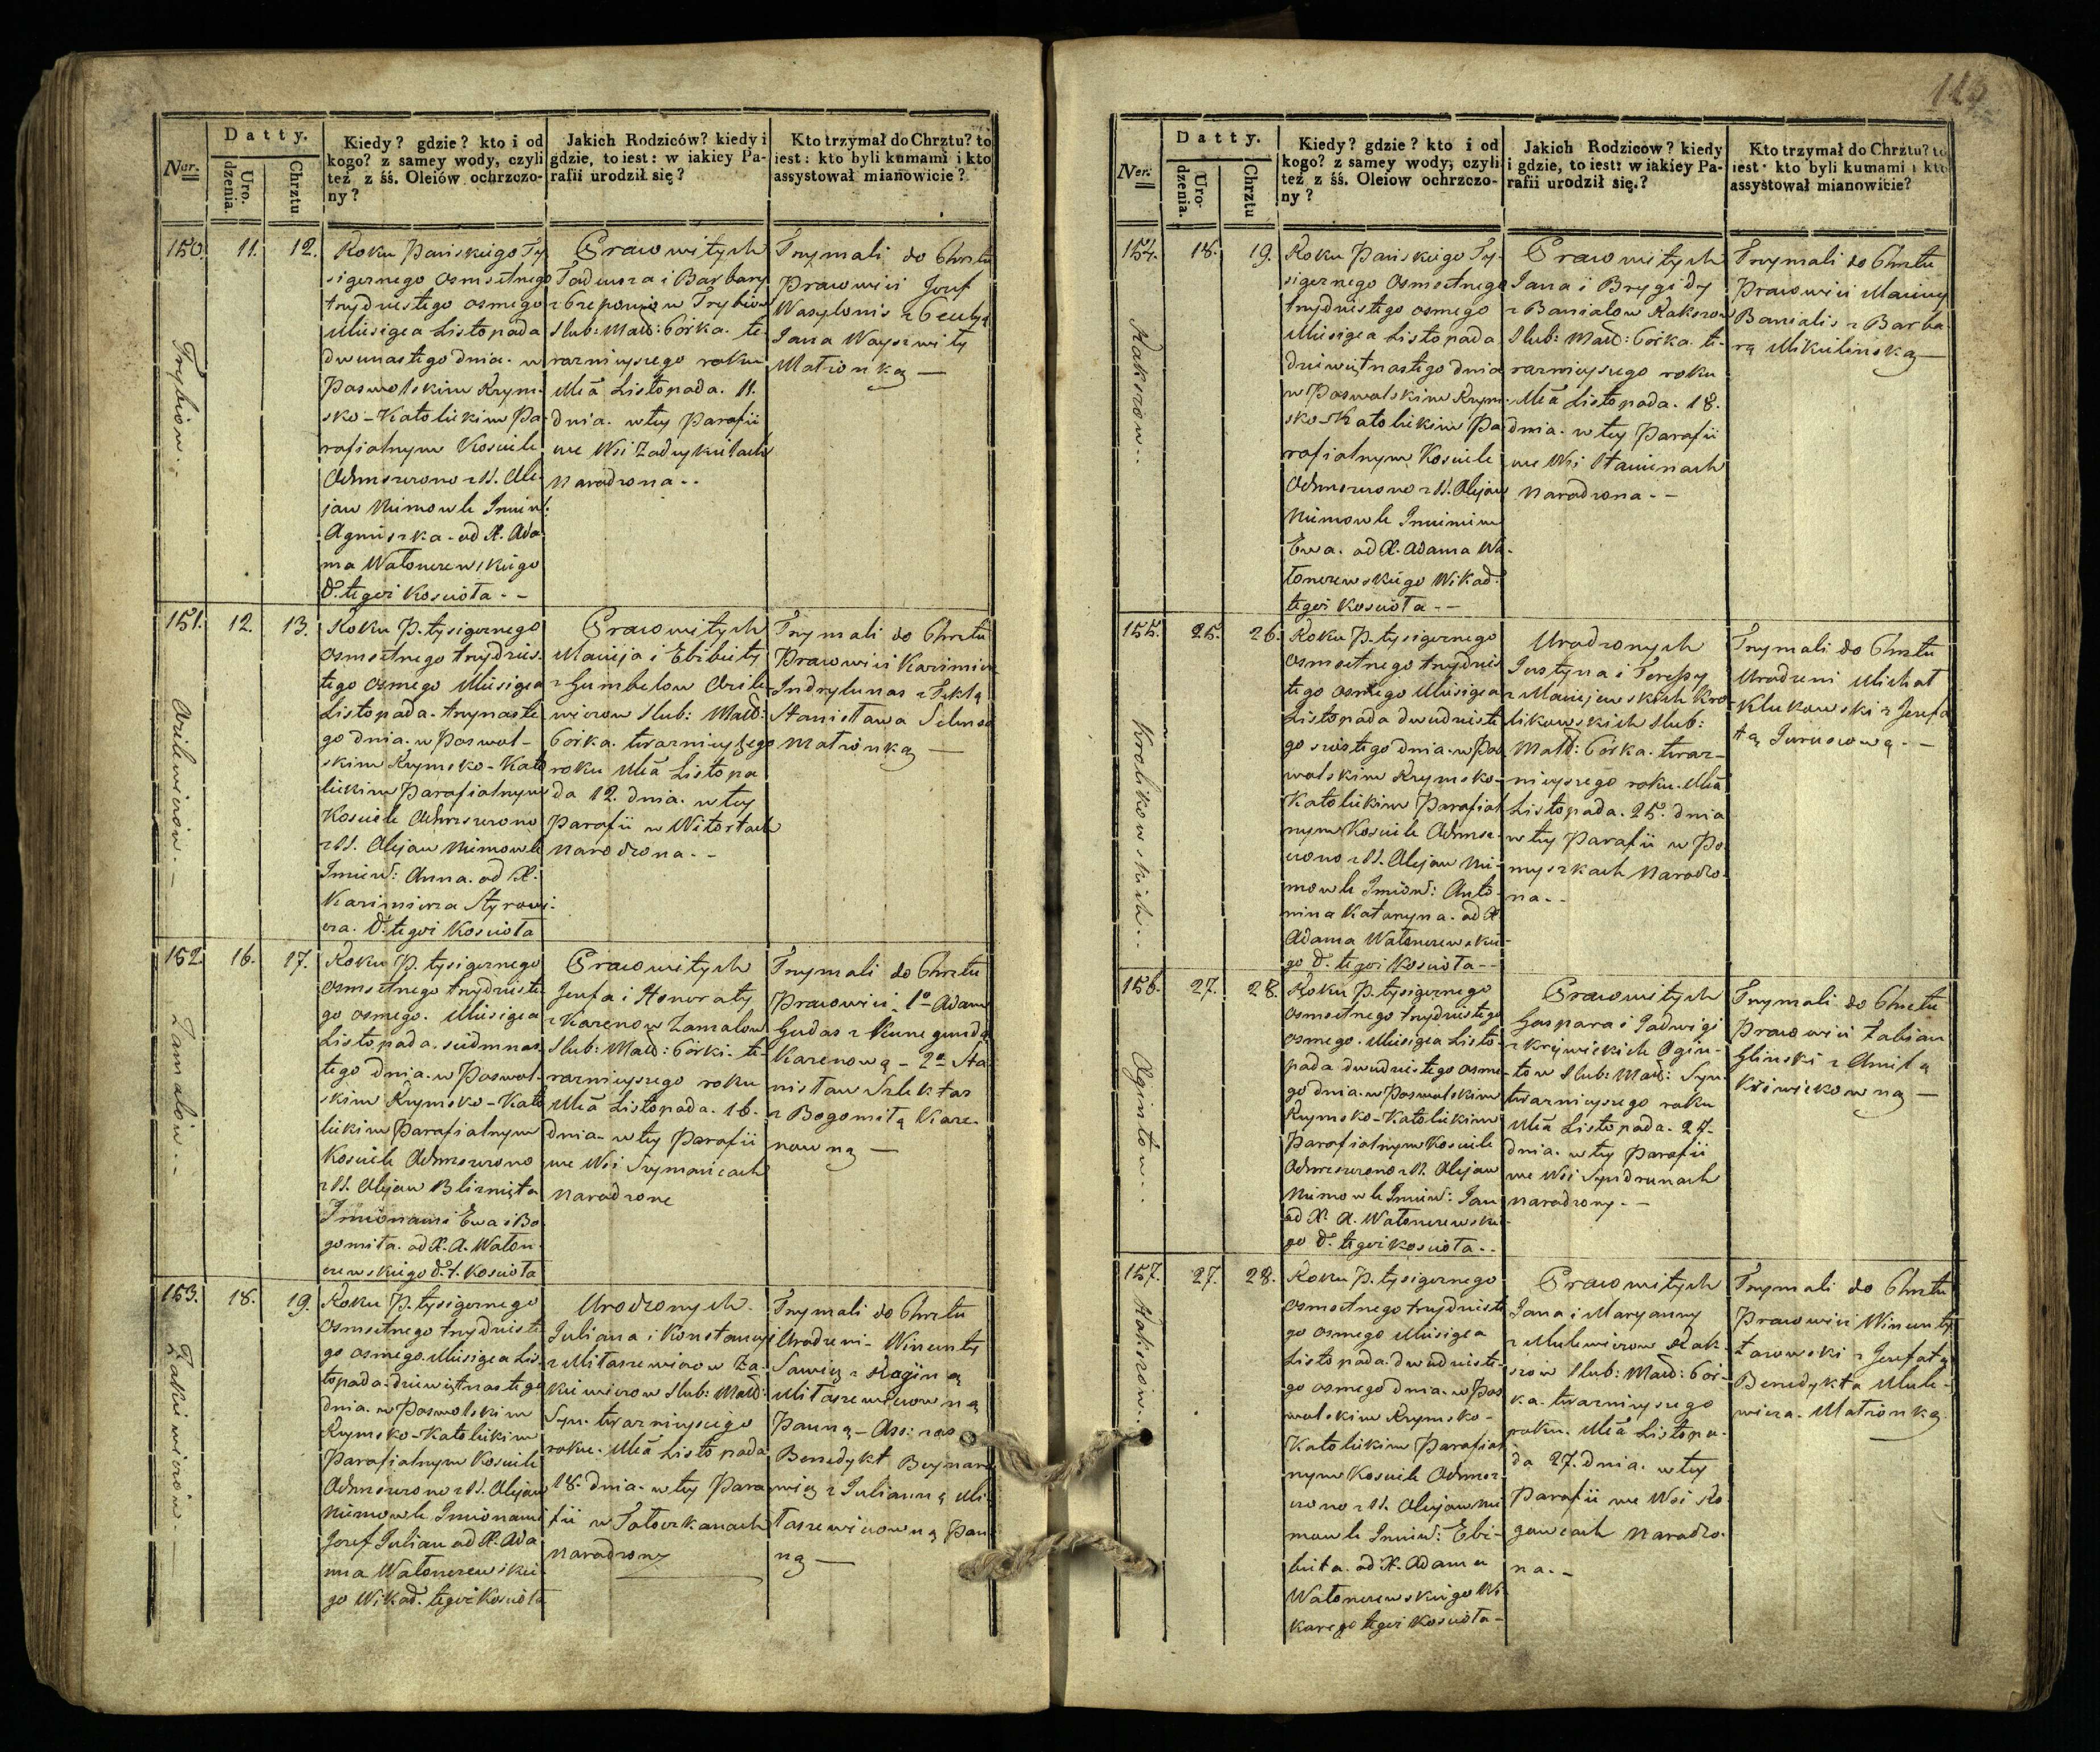 Datty.
Ner.
Uro-
dzenia.
Chrztu
Kiedy? gdzie? kto i od
kogo? z samey wody, czyli
też z śś. Oleiów ochrzczo-
ny?
Jakich Rodziców? kiedy i
gdzie, to iest: w iakiey Pa-
rafii urodził się?
Kto trzymał do Chrztu? to
iest: kto byli kumami i kto
assystował mianowicie?
150.
Trybiow.
11.
12.
Roku Pańskiego Ty
siącznego Osmsetnego
trzydziestego osmego
Miesiąca Listopada
dwunastego dnia w
Poswolskim Rzym-
sko-Katolickim Pa-
rafialnym Kościele
Ochrzczono z SS. Ole-
jow Niemowle Imien:
Agnieszka. od X. Ada
ma Wałonczewskiego
tegoż Kościoła
Prawowitych
Tadeusza i Barbary
Trybiow
Slub: Małż: Córka. te-
raznieyszego roku
Mca Listopada. 11.
dnia. w tey Parafii
we Wsi Zadeykielach
Narodzona
Trzymali do Chrztu
Prawowici Jozef
Wasylonis z Ceculą
Jana
Małżonką
151.
12.
13.
Roku P. tysiącznego
osmsetnego trzydzies-
tego osmego Miesiąca
Listopada trzynaste
go dnia w Poswol-
skim Rzymsko-Kato
lickim Parafialnym
Kościele Ochrzczono
z SS. Olejow Niemowle
Imien: Anna. od X.
Kazimierza Styrowi-
cza. tegoż Kościoła
Prawowitych
Macieja i Elżbiety
z Gumbelow
Slub: Małż:
Córka. teraznieyszego
roku Mca Listopa
da 12. dnia. w tey
Parafii w Witortach
Narodzona
Trzymali do Chrztu
Prawowici Kazimierz
Indrylunas z Teklą
Stanisława
Małżonką
152.
Zamalow
16.
17.
Roku P. tysiącznego
osmsetnego trzydzieste
go osmego. Miesiąca
Listopada. siedmnas
tego dnia. w Poswol-
skim Rzymsko-Kato
lickim Parafialnym
Kościele Ochrzczono
z SS. Olejow Bliznięta
Imionami Ewa i Bo
gomiła. od X. A. Wałon
czewskiego t. Kościoła
Prawowitych
Jozefa i Honoraty
z Karenow Zamalow
Slub: Małż: Córki. te-
raznieyszego roku
Mca Listopada. 16.
dnia. w tey Parafii
we Wsi Szymańcach
Narodzone
Trzymali do Chrztu
Prawowici 1o Adam
Gudas z Kunegundą
Karenową - 2o Sta
nisław Szlektas
z Bogomiłą Kare-
nowną
153.
Zakiewiczow.
18.
19.
Roku P. tysiącznego
Osmsetnego trzydzieste
go osmego. Miesiąca Lis-
topada. dziewiętnastego
dnia. w Poswolskim
Rzymsko-Katolickim
Parafialnym Kościele
Ochrzczono z SS. Olejow
Niemowle Imionami
Jozef Julian od X. Ada
ma Wałonczewskie
go Wikad. tegoż Kościoła
Urodzonych
Juliana i Konstancyi
z Mitaszewiczow Za-
kiewiczow Slub: Małż:
Syn. teraznieyszego
roku. Mca Listopada
18. dnia. w tey Para
fii w Tołoczkanach
Narodzony
Trzymali do Chrztu
Urodzeni. Wincenty
Sawicz z Reginą
Mitaszewiczowną
Panną
Benedykt Beynaro
wicz z Julianną Mi-
taszewiczowną Pan
ną
119
Datty.
Ner.
Uro-
dzenia.
Chrztu
Kiedy? gdzie? kto i od
kogo? z samey wody, czyli
też z śś. Oleiow ochrzczo-
ny?
Jakich Rodziców? kiedy
i gdzie, to iest: w iakiey Pa-
rafii urodził się.?
Kto trzymał do Chrztu? to
iest: kto byli kumami i kto
assystował mianowicie?
154.
18.
19.
Roku Pańskiego Ty-
siącznego Osmsetnego
trzydziestego osmego
Miesiąca Listopada
dziewiętnastego dnia
w Poswolskim Rzym-
sko-Katolickim Pa
rafialnym Kościele
Ochrzczono z SS. Olejow
Niemowle Imieniem
Ewa. od X. Adama Wa-
łonczewskiego Wikad.
tegoż Kościoła
Prawowitych
Jana i Brygidy
z Banialow
Slub: Małż: Córka. te-
raznieyszego roku
Mca Listopada. 18.
dnia. w tey Parafii
we Wsi
Narodzona
Trzymali do Chrztu
Prawowici Maciey
Banialis z Barba
rą Mikulińską
155.
Krolikowskich
25.
26.
Roku P. tysiącznego
osmsetnego trzydzies
tego osmego Miesiąca
Listopada dwudzieste
go szostego dnia. w Pos
wolskim Rzymsko-
Katolickim Parafial
nym Kościele Ochrzcz-
czono z SS. Olejow Nie-
mowle Imion: Anto-
nina Katarzyna. od X.
Adama Wałonczewskie-
go tegoż Kościoła
Urodzonych
Justyna i Teressy
z Maciejewskich Kro
likowskich Slub:
Małż: Córka. teraz-
nieyszego roku. Mca
Listopada. 25. dnia
w tey Parafii w Po
myszkach Narodzo-
na
Trzymali do Chrztu
Urodzeni Michał
Klukowski z Jozefa
tą
156.
Ogintow
27.
28.
Roku P. tysiącznego
Osmsetnego trzydziestego
osmego. Miesiąca Listo-
pada dwudziestego osme-
go dnia. w Poswolskim
Rzymsko-Katolickim
Parafialnym Kościele
Ochrzczono z SS. Olejow
Niemowle Imien: Jan
od X. A. Wałonczewskie
go tegoż Kościoła
Prawowitych
Gaspara i Jadwigi
z Krzywickich Ogin-
tow Slub: Małż: Syn.
teraznieyszego roku
Mca Listopada. 27.
dnia. w tey Parafii
we Wsi Syndrunach
Narodzony
Trzymali do Chrztu
Prawowici Fabian
Gliński z Anielą
157.
27.
28.
Roku P. tysiącznego
Osmsetnego trzydzieste
go osmego Miesiąca
Listopada. dwudzieste-
go osmego dnia. w Pos
wolskim Rzymsko-
Katolickim Parafial
nym Kościele Ochrzcz-
czono z SS. Olejow Nie
mowle Imien: Elż-
bieta. od X. Adama
Wałonczewskiego Wi-
karego tegoż Kościoła
Prawowitych
Jana i Maryanny
z Mulewiczow
Slub: Małż: Cór-
ka. teraznieyszego
roku. Mca Listopa-
da 27. dnia. w tey
Parafii we Wsi Ro
gowcach Narodzo-
na
Trzymali do Chrztu
Prawowici Wincenty
z Jozefatą
Benedykta Mule-
wicza. Małżonką